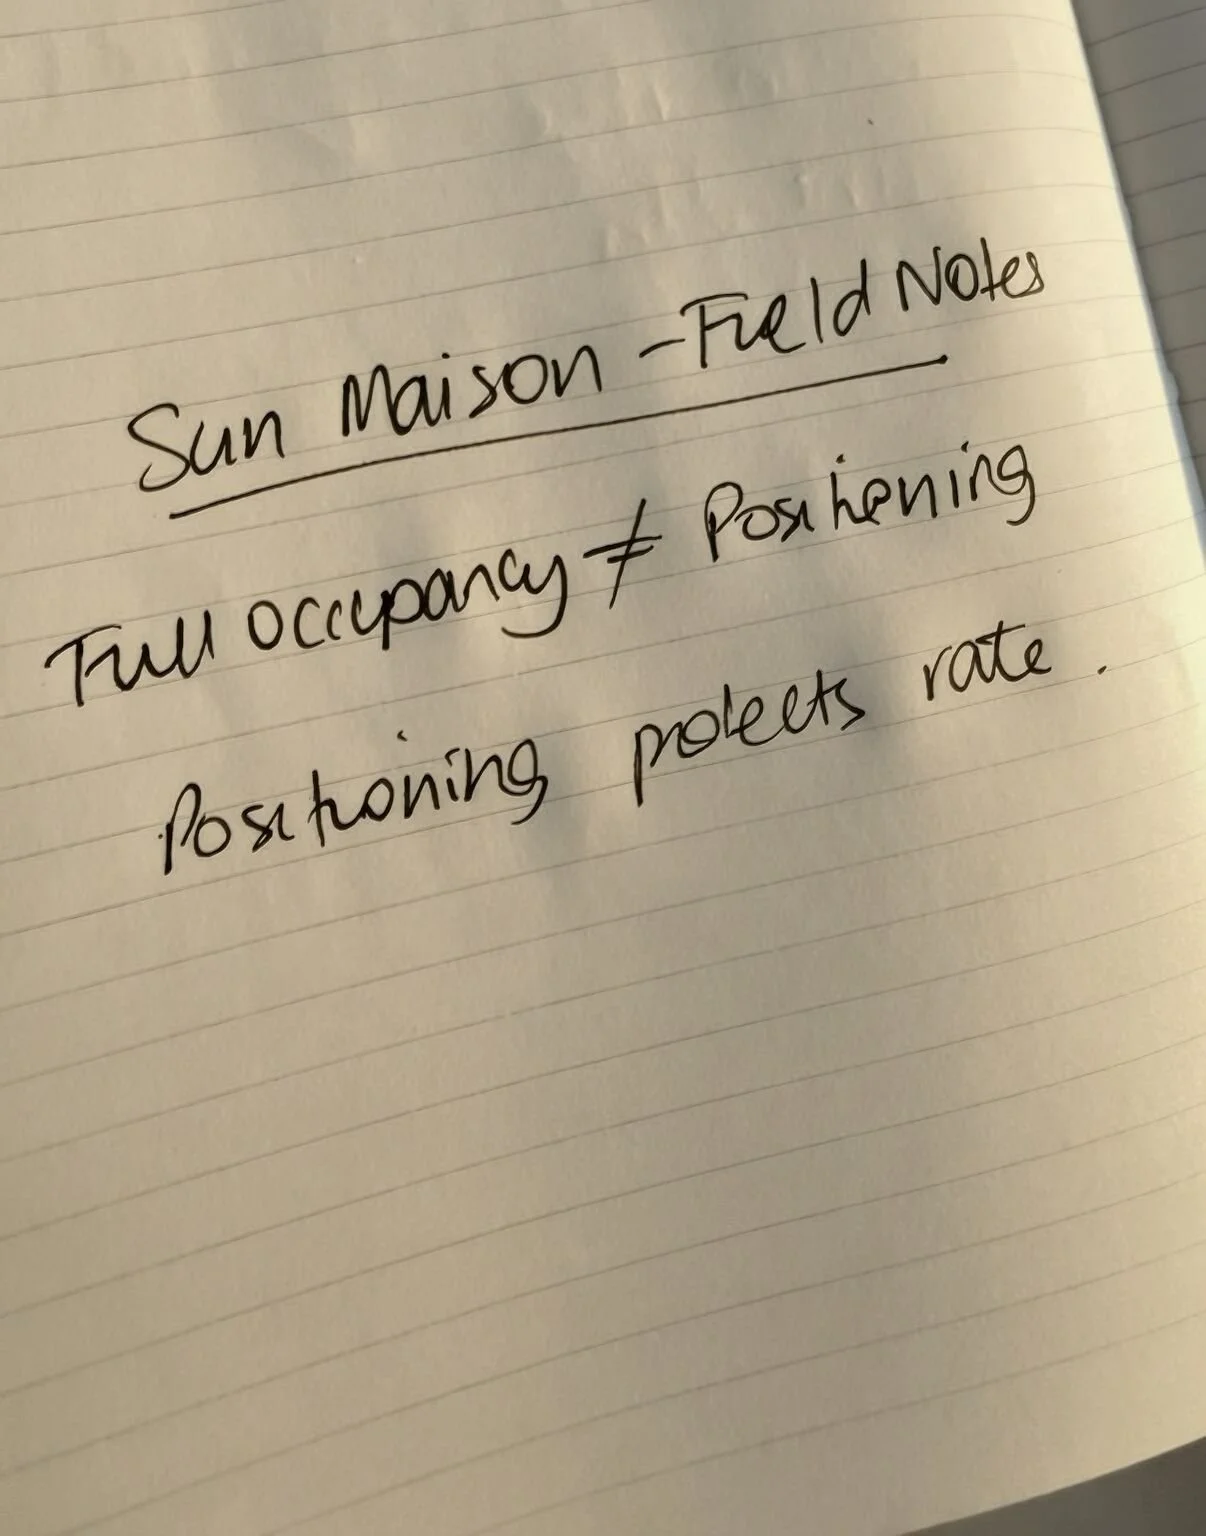 Sun Maison - Field Notes
Full occupancy ≠ Positioning
Positioning protects rate.